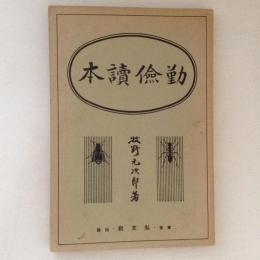 本讀儉勤
牧野元次郎著